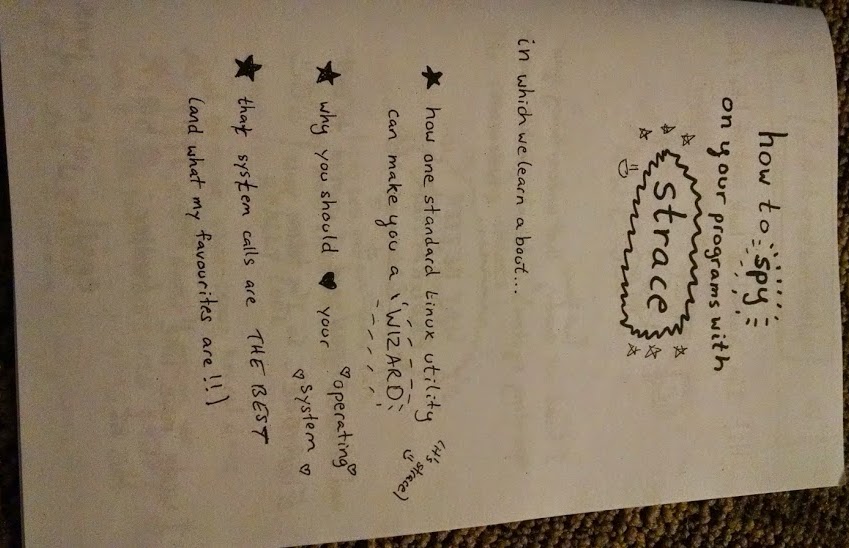 how to spy
on your programs with
strace
in which we learn about...
★ how one standard Linux utility
(it's strace)
can make you a WIZARD
★ why you should ♥ your
♡ operating ♡
♡ system ♡
★ that system calls are THE BEST
(and what my favourites are!!)